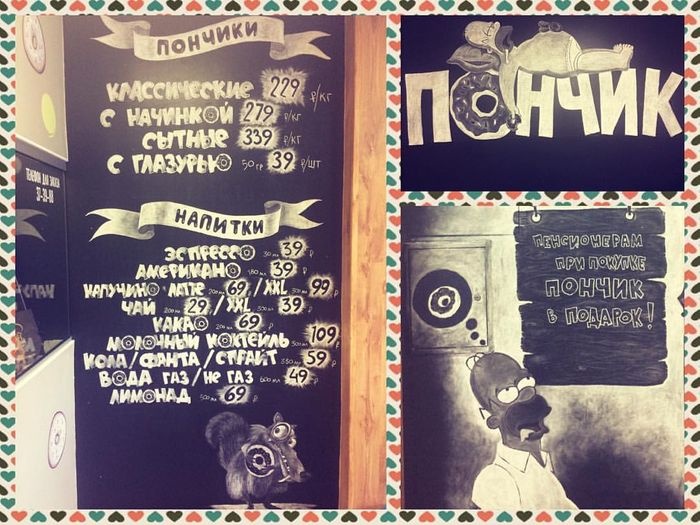 ПОНЧИКИ
КЛАССИЧЕСКИЕ 229 ₽/КГ
С НАЧИНКОЙ 279 ₽/КГ
СЫТНЫЕ 339 ₽/КГ
С ГЛАЗУРЬЮ 50 ГР 39 ₽/ШТ
НАПИТКИ
ЭСПРЕССО 30 МЛ 39 ₽
АМЕРИКАНО 180 МЛ 39 ₽
КАПУЧИНО ЛАТТЕ 200 МЛ 69 / XXL 300 МЛ 99 ₽
ЧАЙ 200 МЛ 29 / XXL 300 МЛ 39 ₽
КАКАО 200 МЛ 69 ₽
МОЛОЧНЫЙ КОКТЕЙЛЬ 109 ₽
КОЛА/ФАНТА/СПРАЙТ 330 МЛ 59 ₽
ВОДА ГАЗ/НЕ ГАЗ 600 МЛ 49 ₽
ЛИМОНАД 500 МЛ 69 ₽
ПОНЧИК
ПЕНСИОНЕРАМ
ПРИ ПОКУПКЕ
ПОНЧИК
В ПОДАРОК!